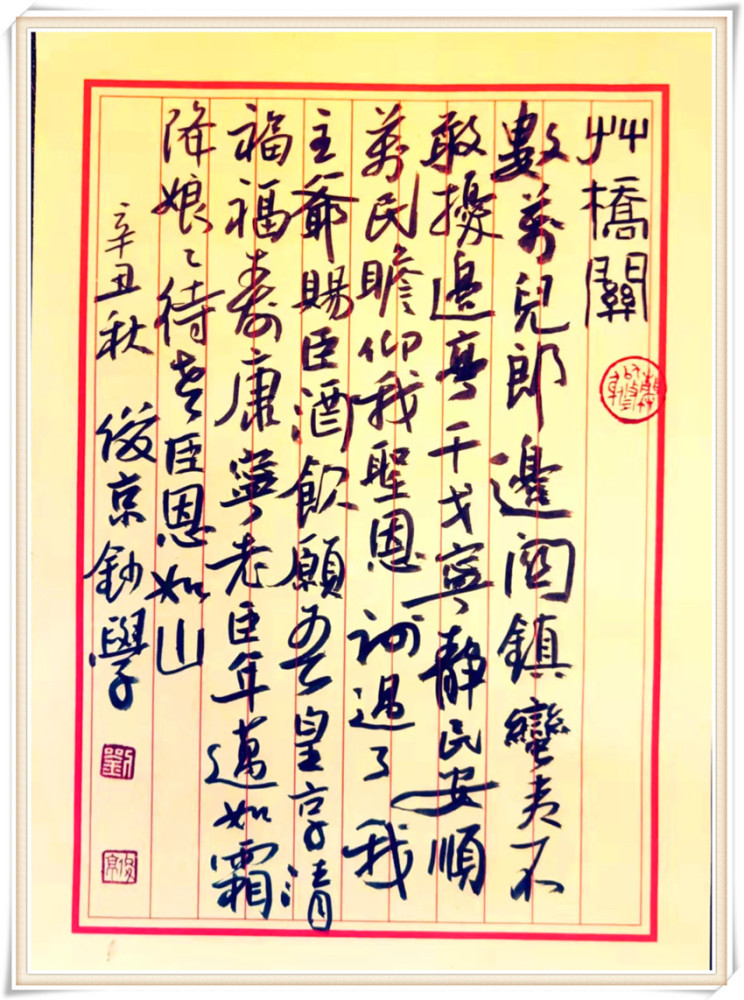 艸橋關
數萬兒郎邊関鎮蠻夷不
敢擾邊亭干戈寧靜民安順
萬民瞻仰我聖恩 謝過了我
主爺賜臣酒飲願吾皇享清
福福壽康寧老臣年邁如霜
降娘〻待老臣恩如山
辛丑秋 俊京鈔學
劉
俊京